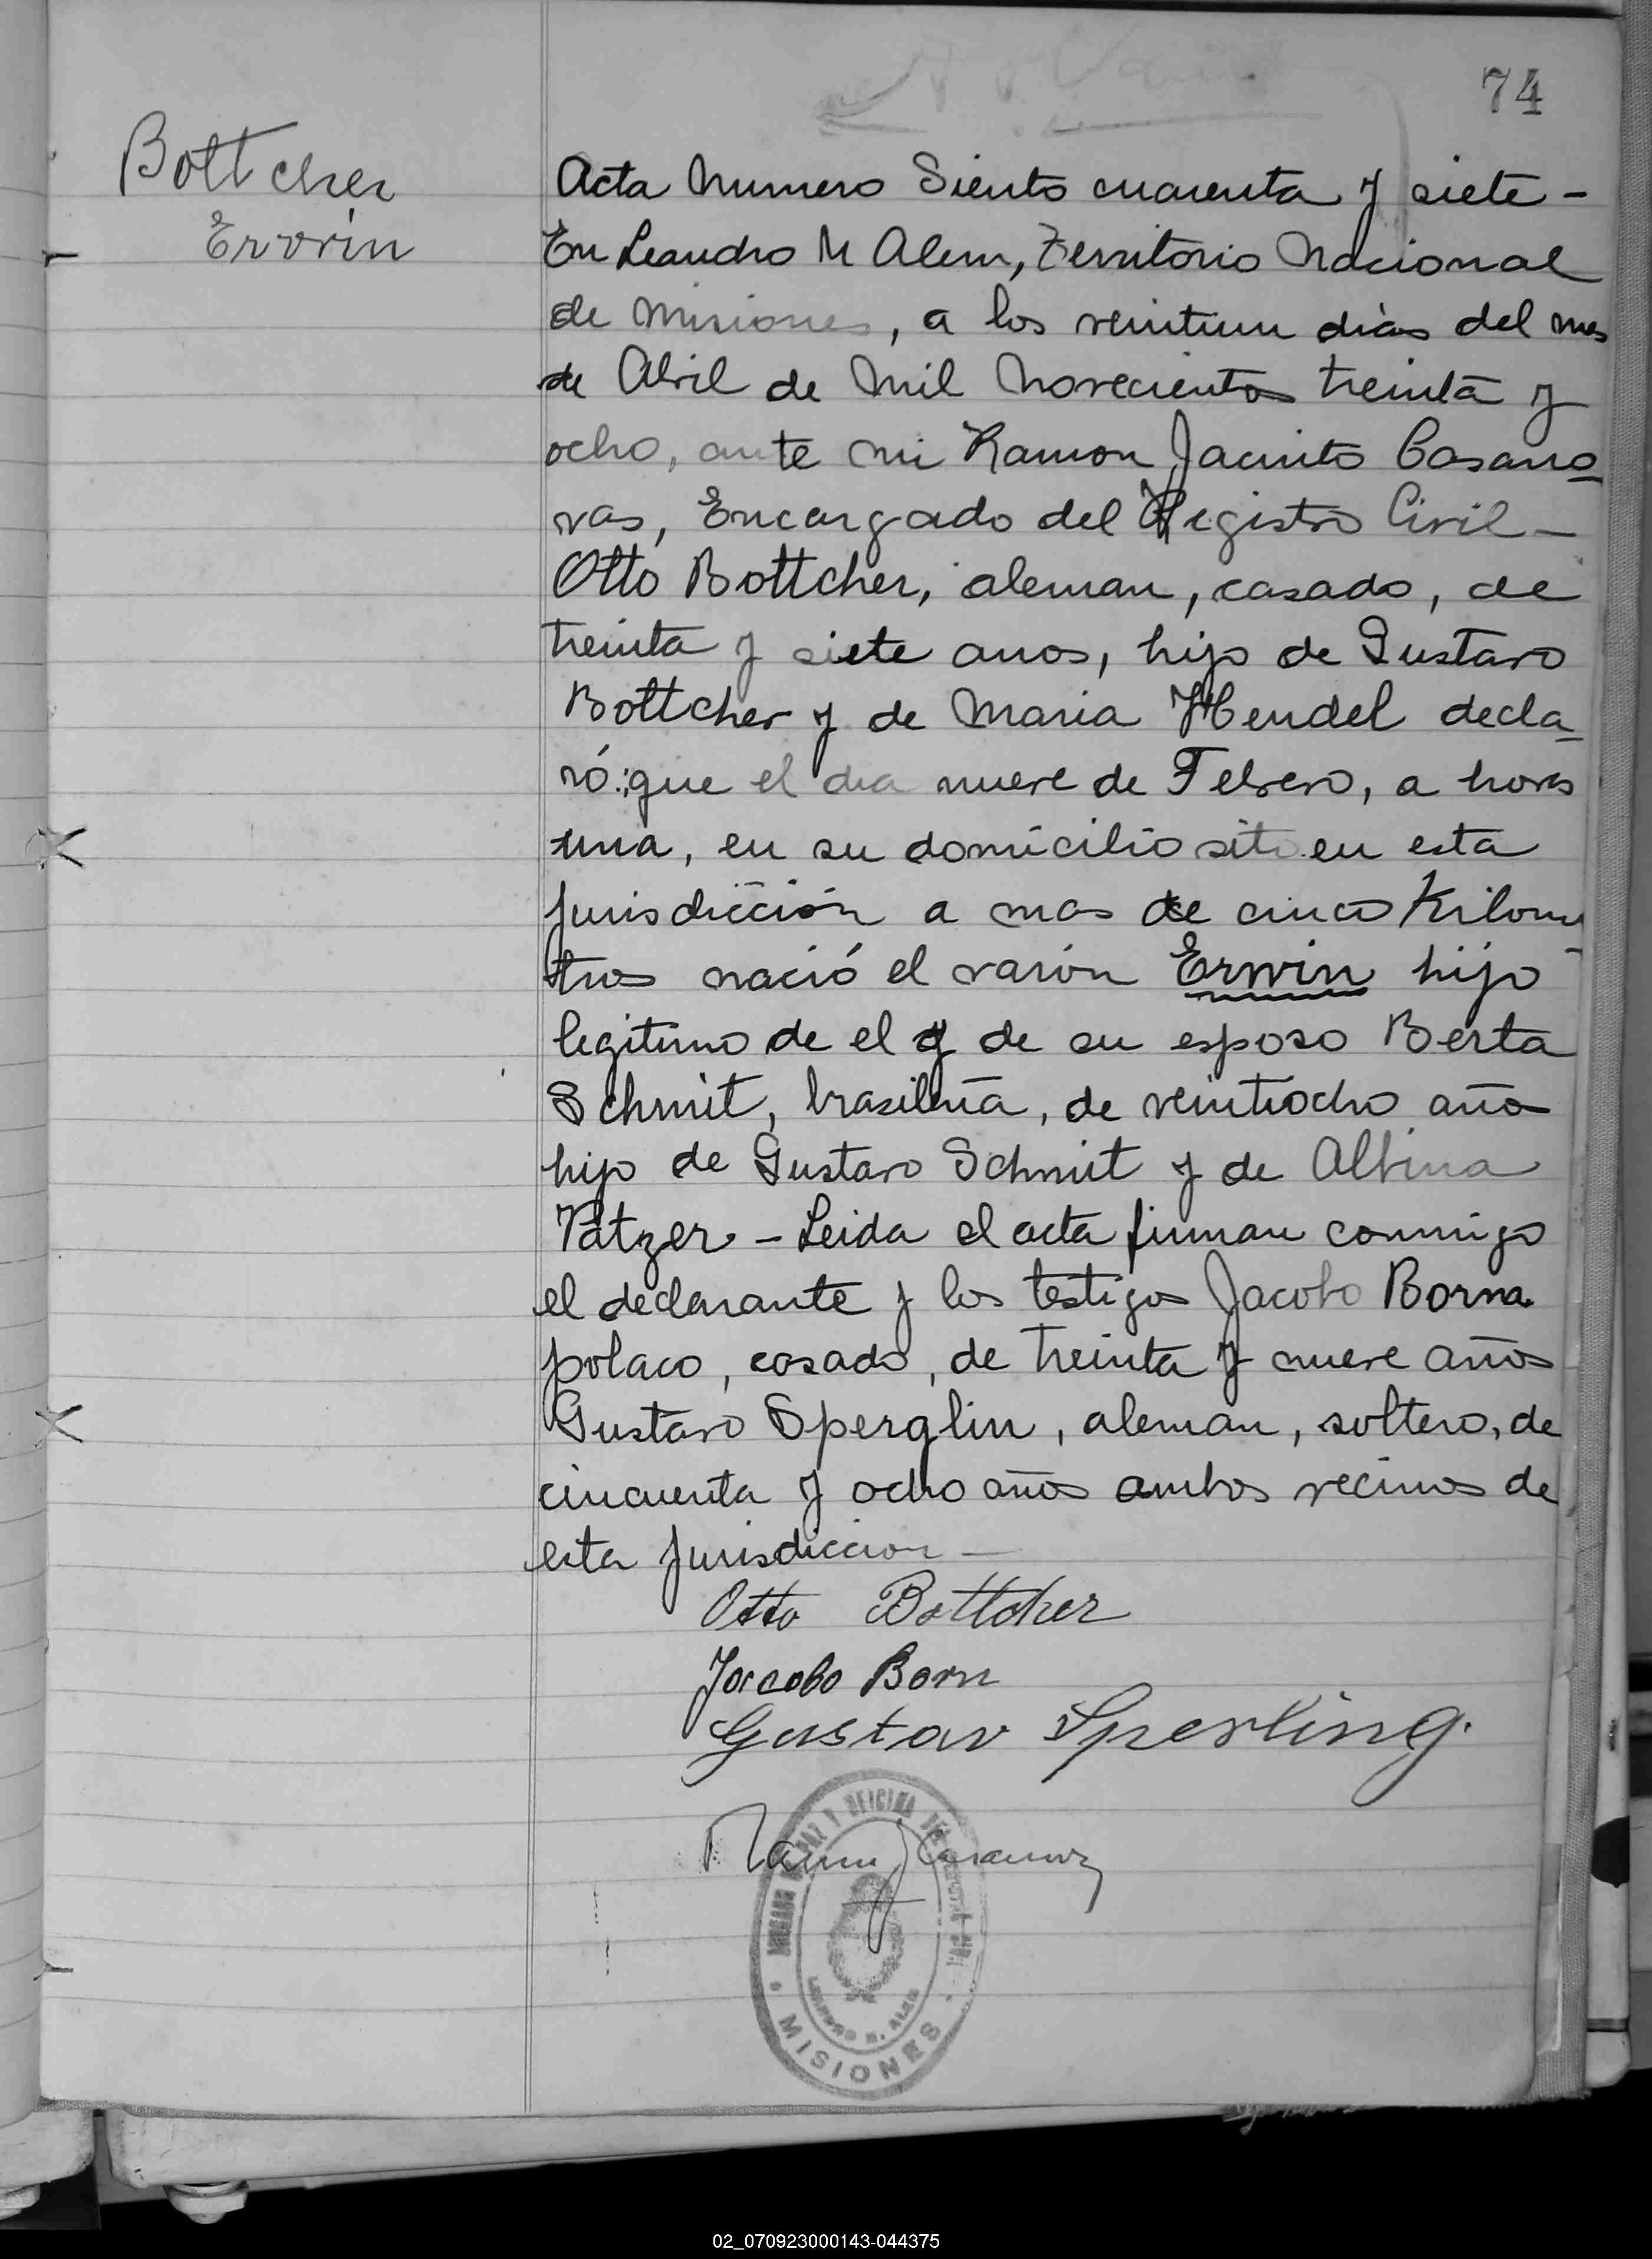 74
Bottcher
Ervin
Acta Numero Siento cuarenta y siete -
En Leandro N Alem, Territorio Nacional
de Misiones, a los veintiun dias del mes
de Abril de Mil Novecientos treinta y
ocho, ante mi Ramon Jacinto Casano
vas, Encargado del Registro Civil -
Otto Bottcher, aleman, casado, de
treinta y siete anos, hijo de Gustavo
Bottcher y de Maria Hendel decla_
ró: que el dia nueve de Febrero, a horas
una, en su domicilio sito en esta
jurisdicción a mas de cinco Kilome
tros nació el varón Erwin hijo
legitimo de el y de su esposo Berta
Schmit, brasileña, de veintiocho años
hijo de Gustavo Schmit y de Albina
Patzer - Leida el acta firman conmigo
el declarante y los testigos Jacobo Borna
polaco, casado, de treinta y nueve años
Gustavo Sperglin, aleman, soltero, de
cincuenta y ocho años ambos vecinos de
esta jurisdiccion -
Otto Bottcher
Jacobo Born
Gustav Sperling.
Ramon J Casanovas
JUZGADO DE PAZ Y OFICINA DEL REGISTRO CIVIL
LEANDRO N. ALEM
MISIONES
02_070923000143-044375